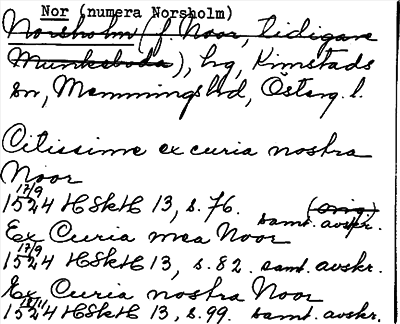 Nor (numera Norsholm)
Norsholm (f. Noor, tidigare
Munkaboda), hg, Kimstads
sn, Memmings hd, Österg. l.
Citissime ex curia nostra
Noor
17/9
1524 HSkH 13, s. 76. (orig.)
samt. avskr.
Ex Curia mea Noor
17/9
1524 HSkH 13, s. 82. samt. avskr.
Ex Curia nostra Noor
18/11
1524 HSkH 13, s. 99. samt. avskr.